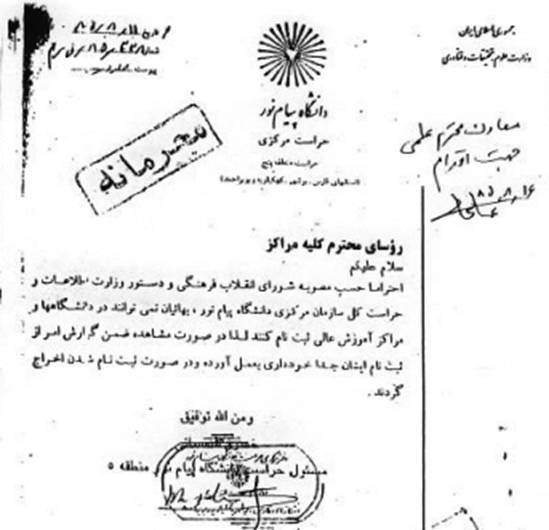 جمهوری اسلامی ایران
وزارت علوم، تحقیقات و فناوری
دانشگاه پیام نور
حراست مرکزی
حراست منطقه پنج
(استانهای فارس، بوشهر، کهگیلویه و بویراحمد)
محرمانه
معاونت محترم علمی
جهت اقدام
۸۵,۸,۱۶
رؤسای محترم کلیه مراکز
سلام علیکم
احتراما حسب مصوبه شورای انقلاب فرهنگی و دستور وزارت اطلاعات و
حراست کل سازمان مرکزی دانشگاه پیام نور ، بهائیان نمی توانند در دانشگاهها و
مراکز آموزش عالی ثبت نام کنند لذا در صورت مشاهده ضمن گزارش امر از
ثبت نام ایشان جدا خودداری بعمل آورده ودر صورت ثبت نام شدن اخراج
گردند .
ومن الله توفیق
مسئول حراست دانشگاه پیام نور منطقه ۵